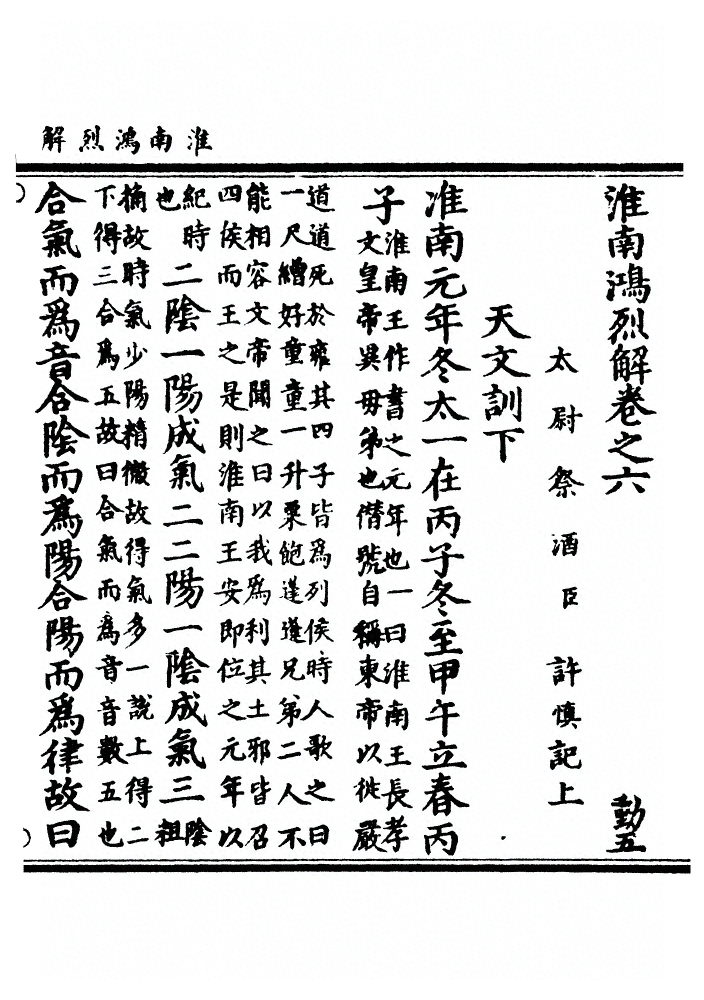 淮南鴻烈解
淮南鴻烈解卷之六 動五
太尉祭酒臣許慎記上
天文訓下
淮南元年冬太一在丙子冬至甲午立春丙
子
淮南王作書之元年也一曰淮南王長孝
文皇帝異母弟也僭號自稱東帝以徙嚴
道道死於雍其四子皆爲列侯時人歌之曰
一尺繒好童童一升粟飽蓬蓬兄弟二人不
能相容文帝聞之曰以我爲利其土邪皆召
四侯而王之是則淮南王安即位之元年以
紀時
也
二陰一陽成氣二二陽一陰成氣三
陰
粗
捔故時氣少陽精微故得氣多一說上得二
下得三合爲五故曰合氣而爲音音數五也
合氣而爲音合陰而爲陽合陽而爲律故曰